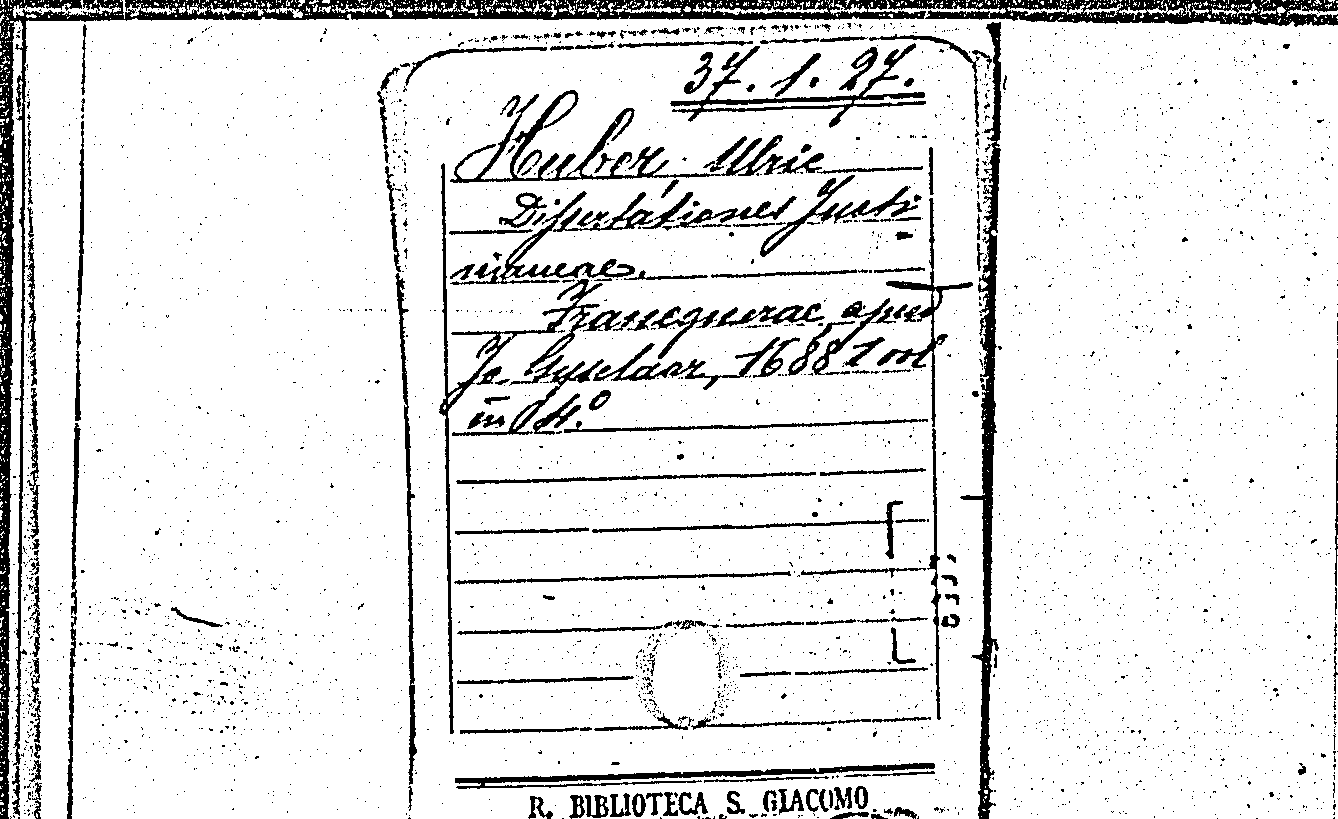 37. 1. 27.
Huber, Ulric
Dissertationes Justi-
nianeae.
Franequerae, apud
Jo. Gyselaar, 1688 1 vol
in 4.º
R. BIBLIOTECA S. GIACOMO